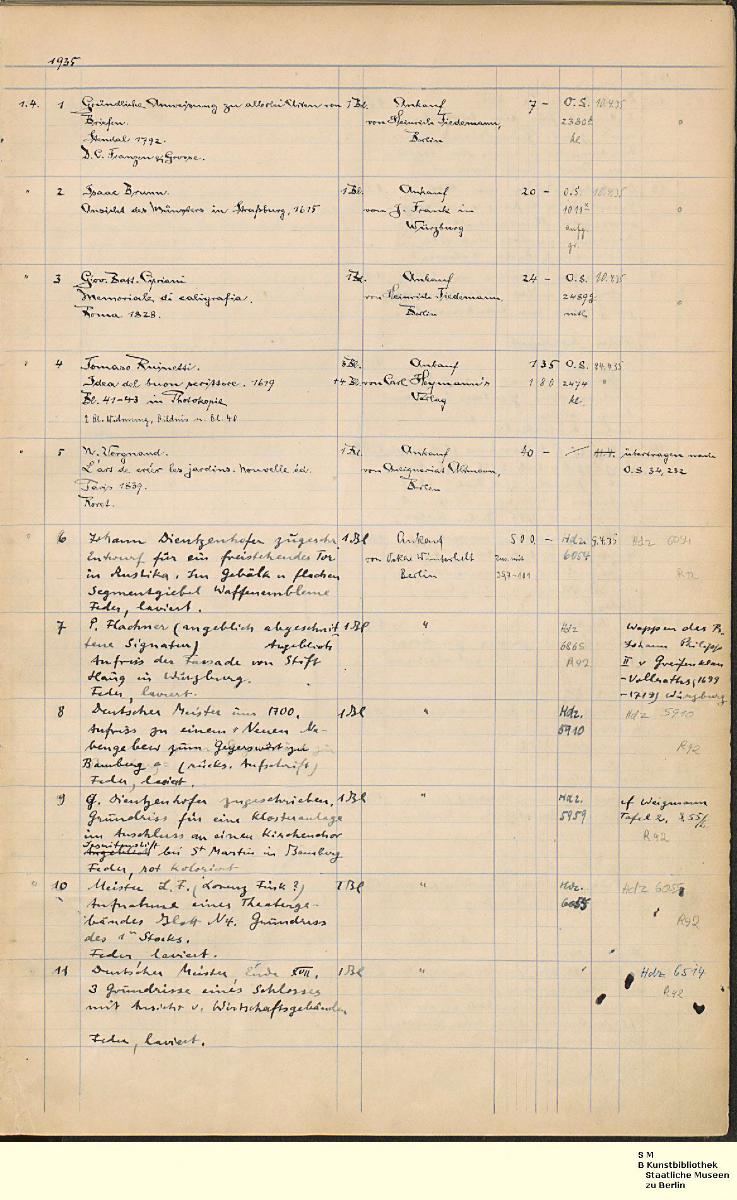 1935
1.4. 1 Gründliche Anweisung zu allerlei Arten von 1 Bl. Ankauf 7 - O.S. 10.4.35
Briefen. von Heinrich Tiedemann,
Stendal 1792. Berlin
D.C. Franzen & Grosse.
" 2 Isaac Brunn. 1 Bl. Ankauf 20 - O.S. 10.4.35
Ansicht des Münsters in Straßburg, 1615 von J. Frank in
Würzburg
" 3 Giov. Batt. Cipriani 1 Bd. Ankauf 24 - O.S. 10.4.35
Memoriale di caligrafia. von Heinrich Tiedemann,
Roma 1828. Berlin
" 4 Tomaso Ruinetti. 8 Bl. Ankauf 1 35 O.S. 24.4.35
Idea del buon scrittore. 1619 +4 Bl. von Carl Heymann's 1 80 2474 "
Bl. 41-43 in Photokopie Verlag
2 Bl. Widmung, Bildnis u. Bl. 40
" 5 N. Vergnaud. 1 Bd. Ankauf 40 - übertragen nach
L'art de créer les jardins. Nouvelle éd. von Antiquariat O.S. 34, 232
Paris 1839. Berlin
Roret.
" 6 Johann Dientzenhofer zugeschr. 1 Bl Ankauf 500 - Hdz 9.4.35 Hdz 6054
Entwurf für ein freistehendes Tor 6054
in Rustika. Im Gebälk u flachen Berlin R92
Segmentgiebel Waffenembleme
Feder, laviert.
7 (angeblich abgeschnit- 1 Bl " Hdz Wappen des
tene Signatur) Angeblich 6865 Johann Philipp
Aufriss der Fassade von Stift R92 II v Greifenklau
Haug in Würzburg. -Vollraths (1699
Feder, laviert. -1719) Würzburg
8 Deutscher Meister um 1700. 1 Bl " Hdz. Hdz 5910
Aufriss zu einem Neuen Ne- 5910
bengebew zum R92
Bamberg (rücks. Aufschrift)
Feder, laviert.
9 G. Dientzenhofer zugeschrieben. 1 Bl " Hdz. cf Weigmann
Grundriss für eine Klosteranlage 5959 Tafel 2,
im Anschluss an einen Kirchenchor R92
Jesuitenstift
Angeblich bei St Martin in Bamberg
Feder, rot koloriert
" 10 Meister L.F. (Lorenz Fink?) 1 Bl " Hdz. Hdz 6055
Aufnahme eines Theaterge- 6055
bäudes Blatt N4. Grundriss R92
des 1n Stocks.
Feder laviert.
11 Deutscher Meister Ende XVII. 1 Bl " Hdz 6514
3 Grundrisse eines Schlosses R92
mit Ansicht v. Wirtschaftsgebäuden
Feder, laviert.
S M
B Kunstbibliothek
Staatliche Museen
zu Berlin